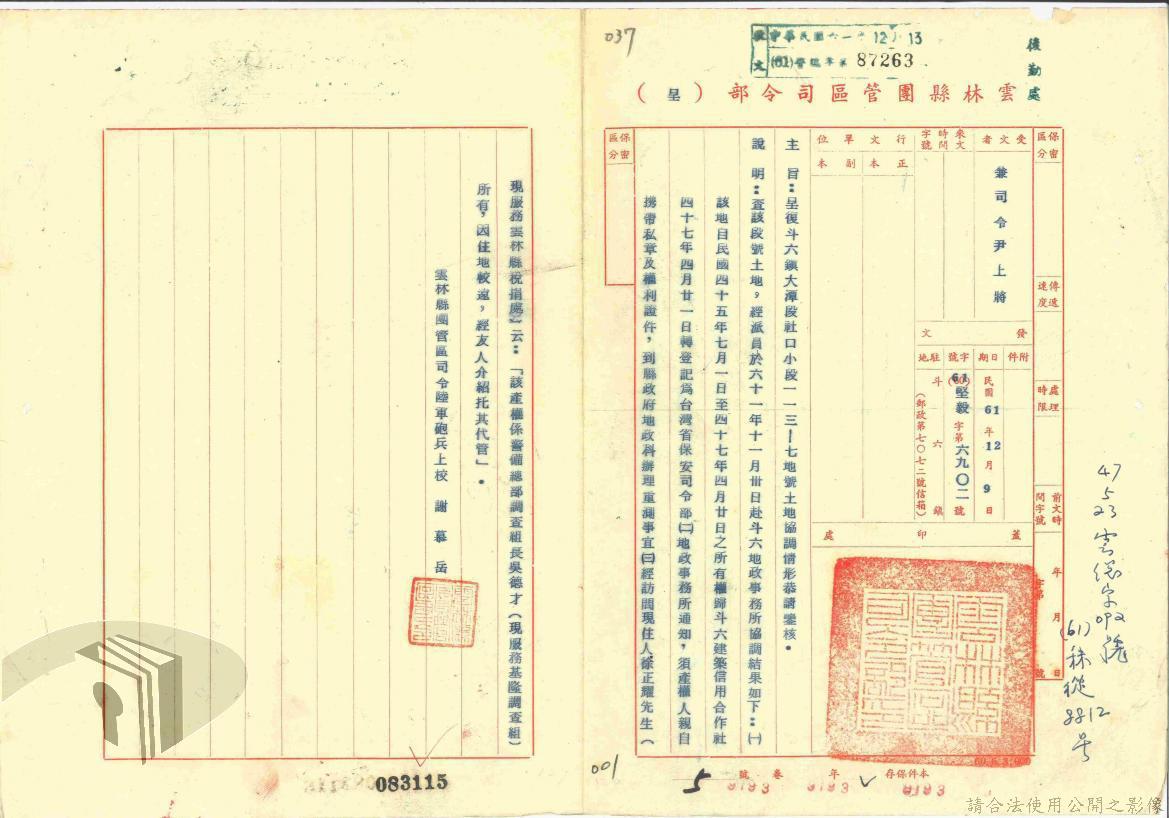 037
收文
中華民國六一年12月13
(61)督總率第87263
後勤處
雲林縣團管區司令部（呈）
保密區分
傳遞速度
處理時限
前文時間字號
年月日
字第
號
受文者
兼司令尹上將
來文時間字號
行文單位
正本
副本
發文
附件
日期
民國61年12月9日
字號
61
(60)堅毅字第六九〇二號
駐地
斗六鎮
（郵政第七〇七二號信箱）
蓋印處
雲林縣團管區司令部印
主旨：呈復斗六鎮大潭段社口小段一一三–七地號土地協調情形恭請鑒核。
說明：查該段號土地，經派員於六十一年十一月卅日赴斗六地政事務所協調結果如下：㈠
該地自民國四十五年七月一日至四十七年四月廿日之所有權歸斗六建築信用合作社
四十七年四月廿一日轉登記為台灣省保安司令部㈡地政事務所通知，須產權人親自
携帶私章及權利證件，到縣政府地政科辦理重測事宜㈢經訪問現住人徐正耀先生（
保密區分
現服務雲林縣稅捐處）云：「該產權係警備總部調查組長吳德才（現服務基隆調查組）
所有，因住地較遠，經友人介紹托其代管」。
雲林縣團管區司令陸軍砲兵上校 謝慕岳
47
5
23
(61)
8812
號
001
本件保存年卷號
5
9193 9193 9193
083115
請合法使用公開之影像